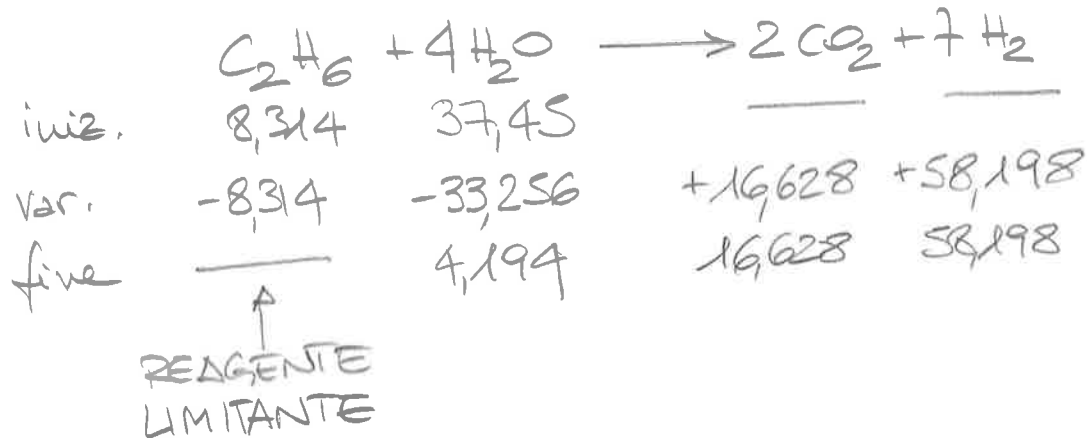 C₂H₆ + 4H₂O ⟶ 2CO₂ + 7H₂
iniz. 8,314 37,45 — —
var. -8,314 -33,256 +16,628 +58,198
fine — 4,194 16,628 58,198
REAGENTE
LIMITANTE